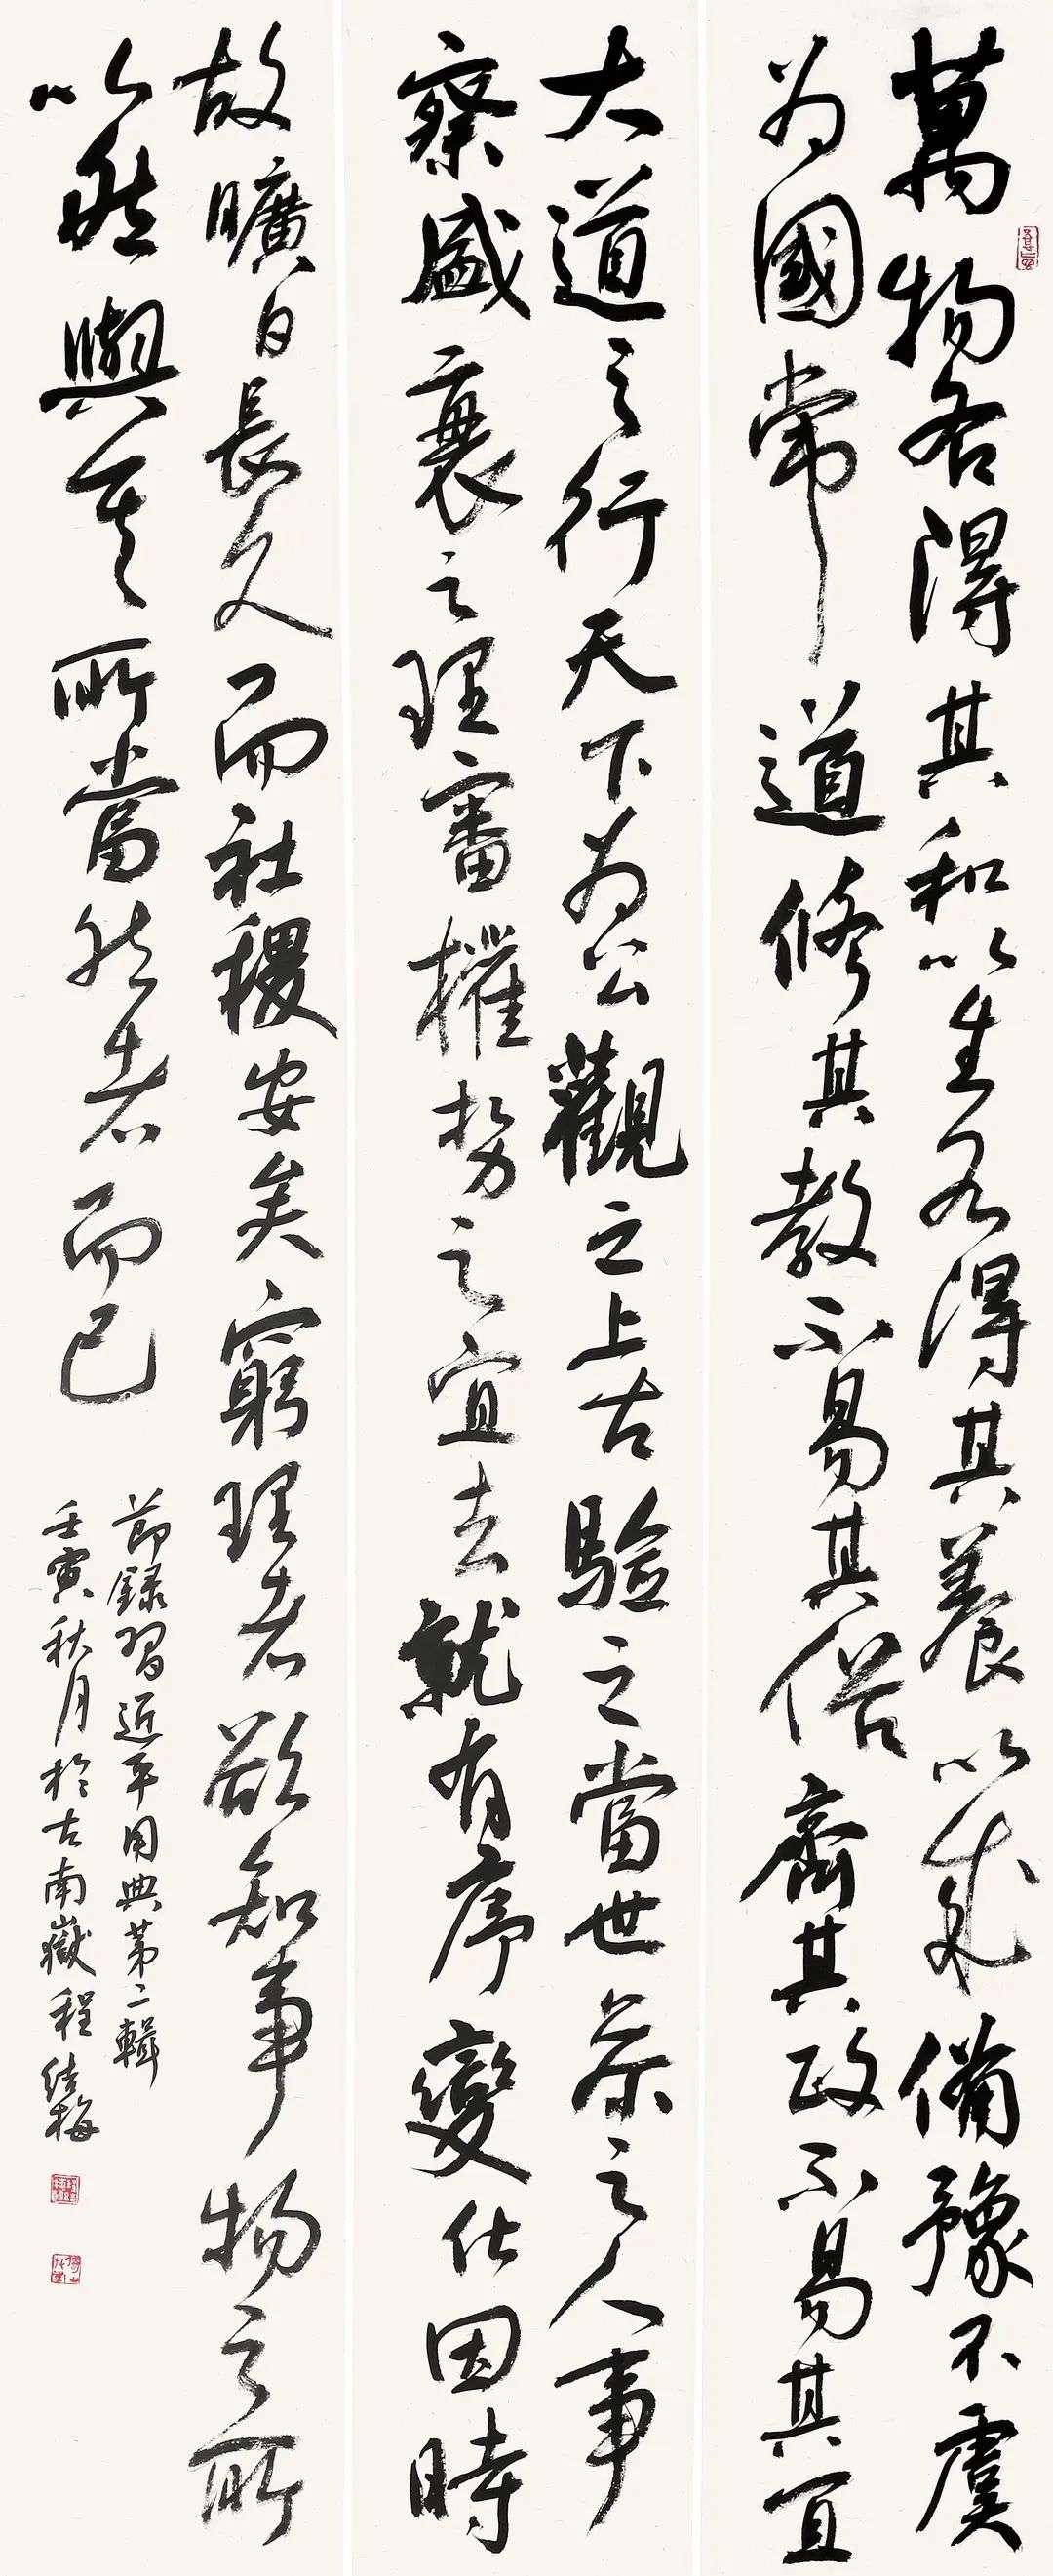 萬物各得其和以生各得其養以成備豫不虞
為國常道修其教不易其俗齊其政不易其宜
大道之行天下為公觀之上古驗之當世參之人事
察盛衰之理審權勢之宜去就有序變化因時
故曠日長久而社稷安矣窮理者欲知事物之所
以然與其所當然者而已
節録習近平用典第二輯
壬寅秋月於古南嶽程結梅